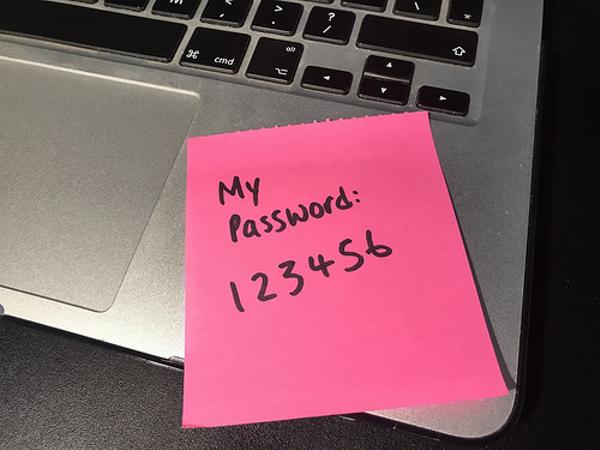 M < > ? \
, . /
⌘ cmd alt
⌥
My
Password:
123456